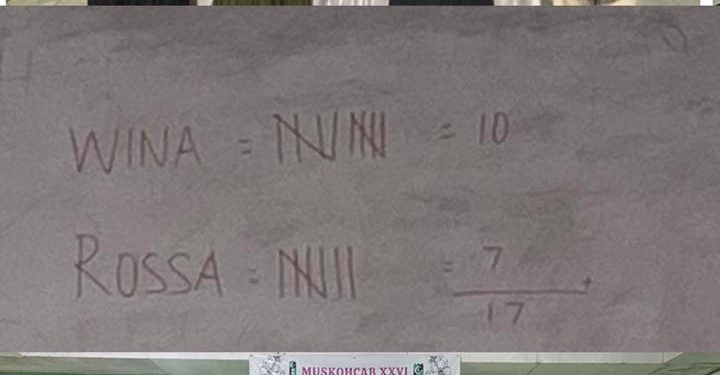 WINA = 𝍸 𝍸 = 10
ROSSA = 𝍸 || = 7
+
17
MUSKOHCAB XXVI